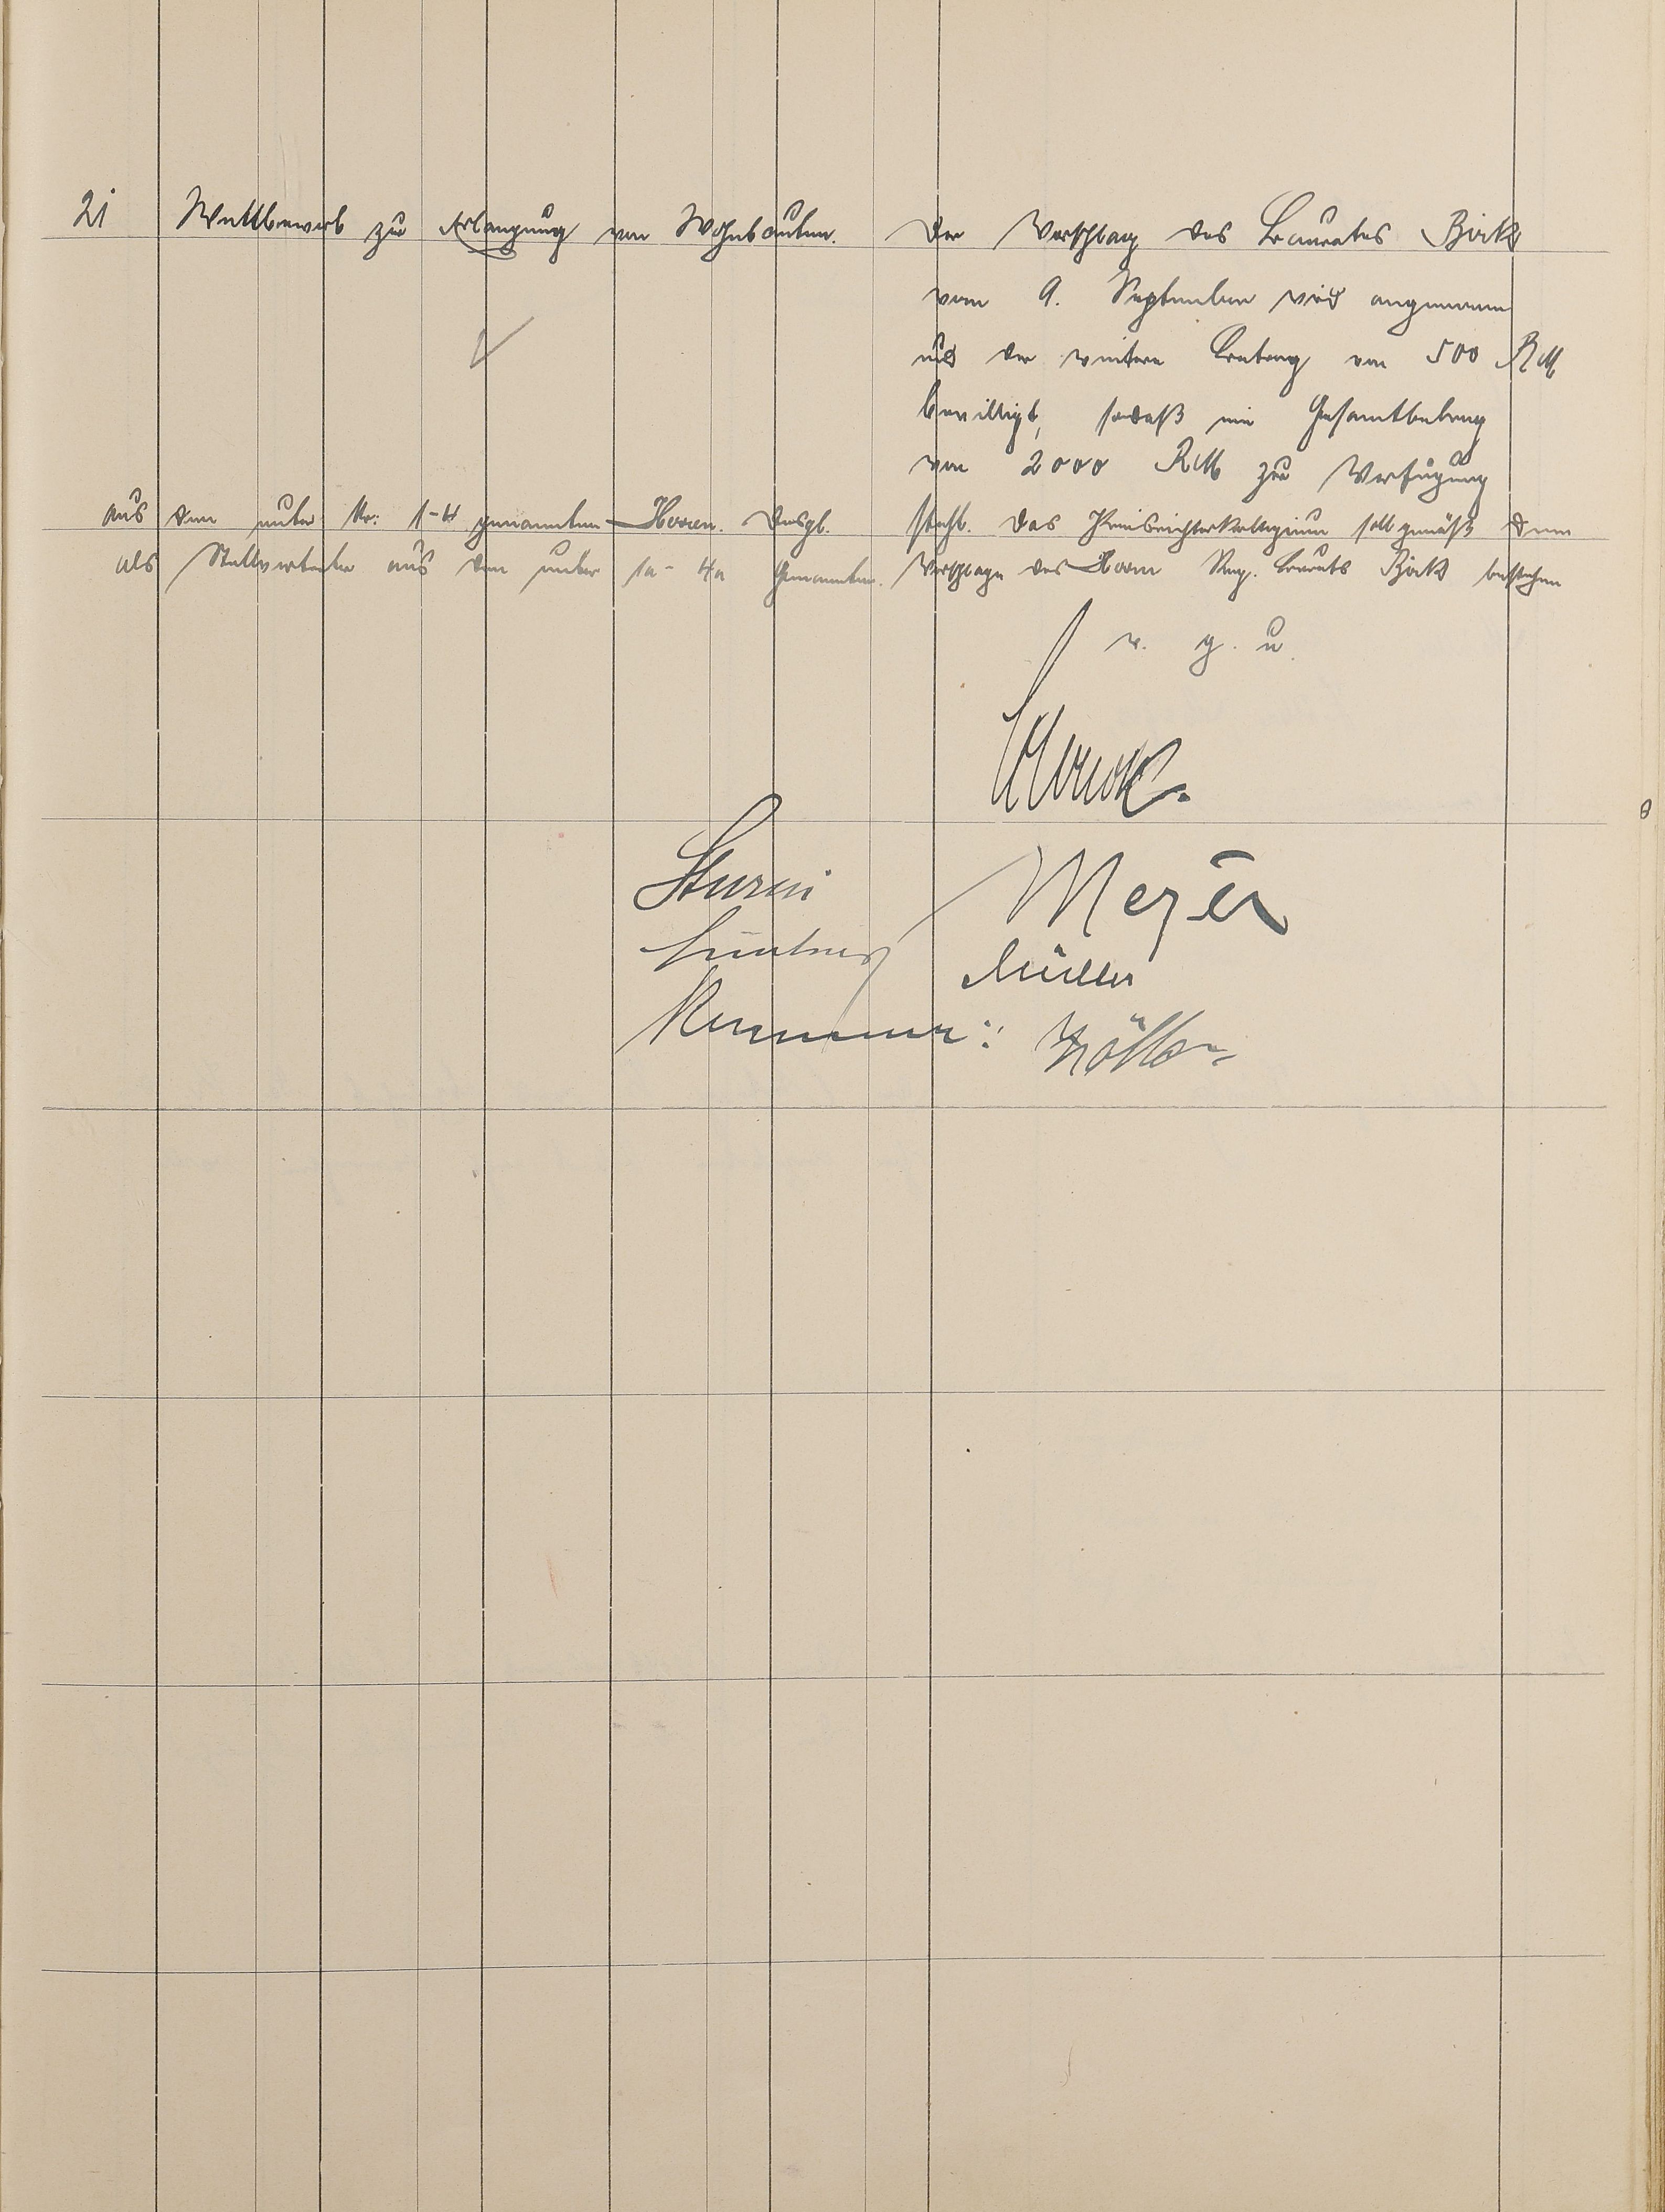 21 Wettbewerb zur Erlangung von Wohnbauten.
Der Vorschlag des Baurates Birk
vom 9. September wird angenommen
und der weitere Betrag von 500 RM
bewilligt, sodaß ein Gesamtbetrag
von 2000 RM zur Verfügung
steht. Das Preisrichterkollegium soll gemäß dem
Vorschlage des Herrn Reg. Baurats Birk bestehen
aus den unter Nr: 1-4 genannten Herren. Desgl.
als Stellvertreter aus den unter 1a - 4a Genannten.
v. g. u.
Sturm
Meyer
Müller